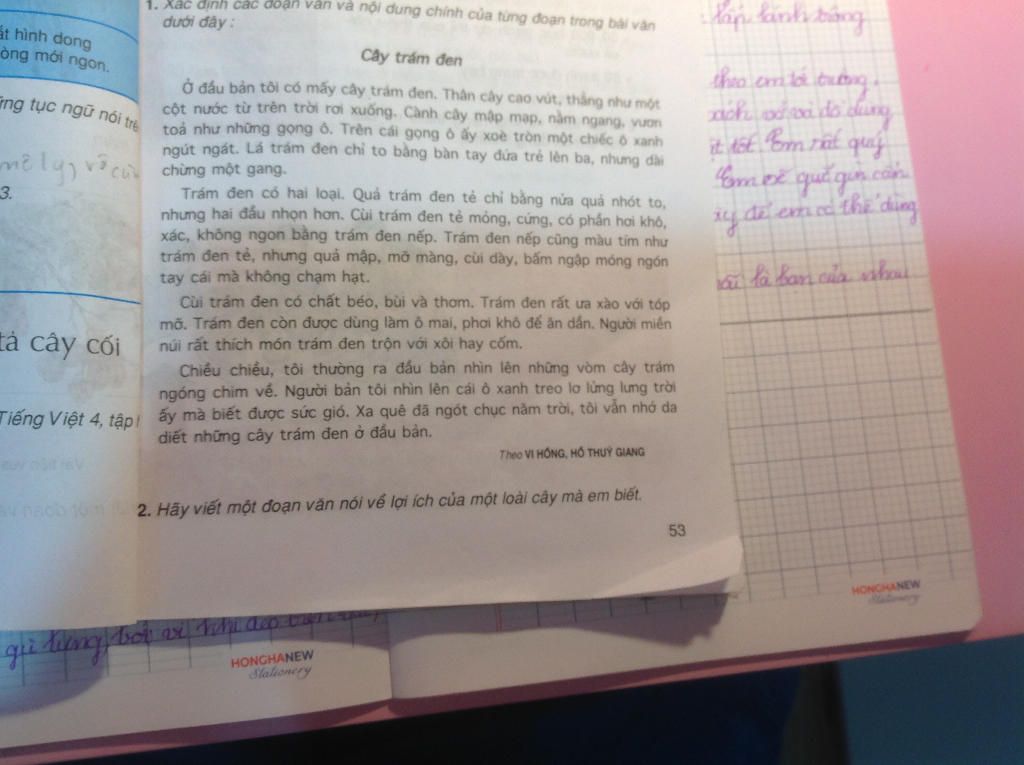 ắt hình dong
òng mới ngon.
ững tục ngữ nói trê
3.
tả cây cối
Tiếng Việt 4, tập
1. Xác định các đoạn văn và nội dung chính của từng đoạn trong bài văn
dưới đây :
Cây trám đen
Ở đầu bản tôi có mấy cây trám đen. Thân cây cao vút, thẳng như một
cột nước từ trên trời rơi xuống. Cành cây mập mạp, nằm ngang, vươn
toả như những gọng ô. Trên cái gọng ô ấy xoè tròn một chiếc ô xanh
ngút ngát. Lá trám đen chỉ to bằng bàn tay đứa trẻ lên ba, nhưng dài
chừng một gang.
Trám đen có hai loại. Quả trám đen tẻ chỉ bằng nửa quả nhót to,
nhưng hai đầu nhọn hơn. Cùi trám đen tẻ mỏng, cứng, có phần hơi khô,
xác, không ngon bằng trám đen nếp. Trám đen nếp cũng màu tím như
trám đen tẻ, nhưng quả mập, mỡ màng, cùi dày, bấm ngập móng ngón
tay cái mà không chạm hạt.
Cùi trám đen có chất béo, bùi và thơm. Trám đen rất ưa xào với tóp
mỡ. Trám đen còn được dùng làm ô mai, phơi khô để ăn dần. Người miền
núi rất thích món trám đen trộn với xôi hay cốm.
Chiều chiều, tôi thường ra đầu bản nhìn lên những vòm cây trám
ngóng chim về. Người bản tôi nhìn lên cái ô xanh treo lơ lửng lưng trời
ấy mà biết được sức gió. Xa quê đã ngót chục năm trời, tôi vẫn nhớ da
diết những cây trám đen ở đầu bản.
Theo VI HỒNG, HỒ THUỶ GIANG
2. Hãy viết một đoạn văn nói về lợi ích của một loài cây mà em biết.
53
lấp lánh trông
theo em tới trường.
sách vở và đồ dùng
ít tốt Em rất quý
Em sẽ giữ gìn cẩn
ày để em có thể dùng
là bạn của nhau
HONGHANEW
Stationery
HONGHANEW
Stationery